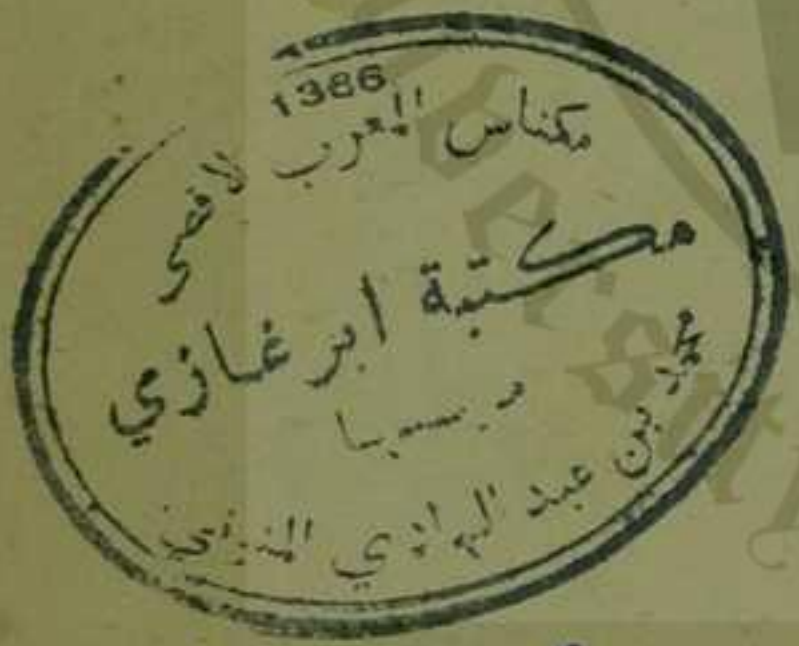 1386
مكناس المغرب لاقصى
مكتبة ابر غازي
محمد بن عبد الهادي المنوني